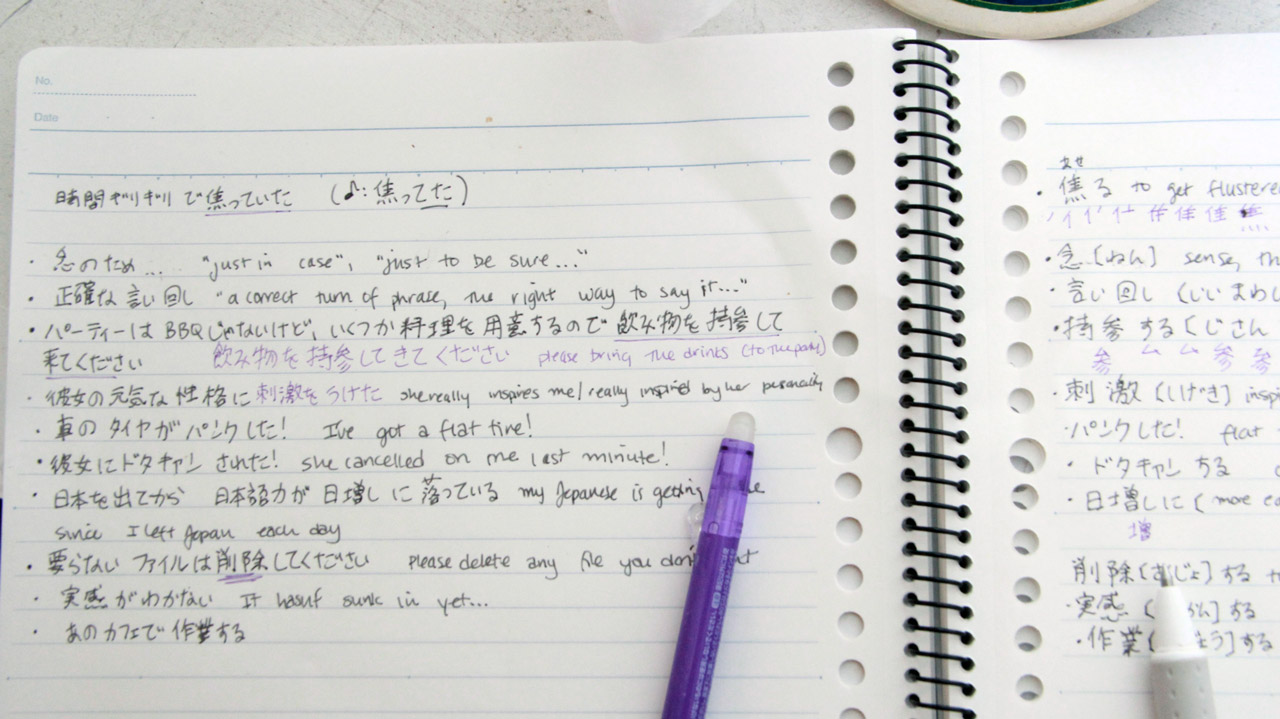 No.
Date
時間ギリギリで焦っていた (♪:焦ってた)
・念のため... "just in case", "just to be sure..."
・正確な言い回し "a correct turn of phrase, the right way to say it..."
・パーティーはBBQじゃないけど、いくつか料理を用意するので飲み物を持参して
来てください 飲み物を持参してきてください please bring the drinks (to the party)
・彼女の元気な性格に刺激をうけた she really inspires me/really inspired by her personality
・車のタイヤがパンクした! I've got a flat tire!
・彼女にドタキャンされた! she cancelled on me last minute!
・日本を出てから 日本語力が日増しに落っている my Japanese is getting
since I left Japan each day
・要らないファイルは削除してください please delete any file you don't
・実感がわかない It hasn't sunk in yet...
・あのカフェで作業する
あせ
・焦る to get flustere
・念[ねん] sense, th
・言い回し (いいまわし
・持参する(じさん
参 ム ム 参 参
・刺激(しげき] insp
・パンクした! flat
・ドタキャンする
・日増しに( more ea
増
削除[さくじょ]する t
・実感( かん]する
・作業( ょう]する